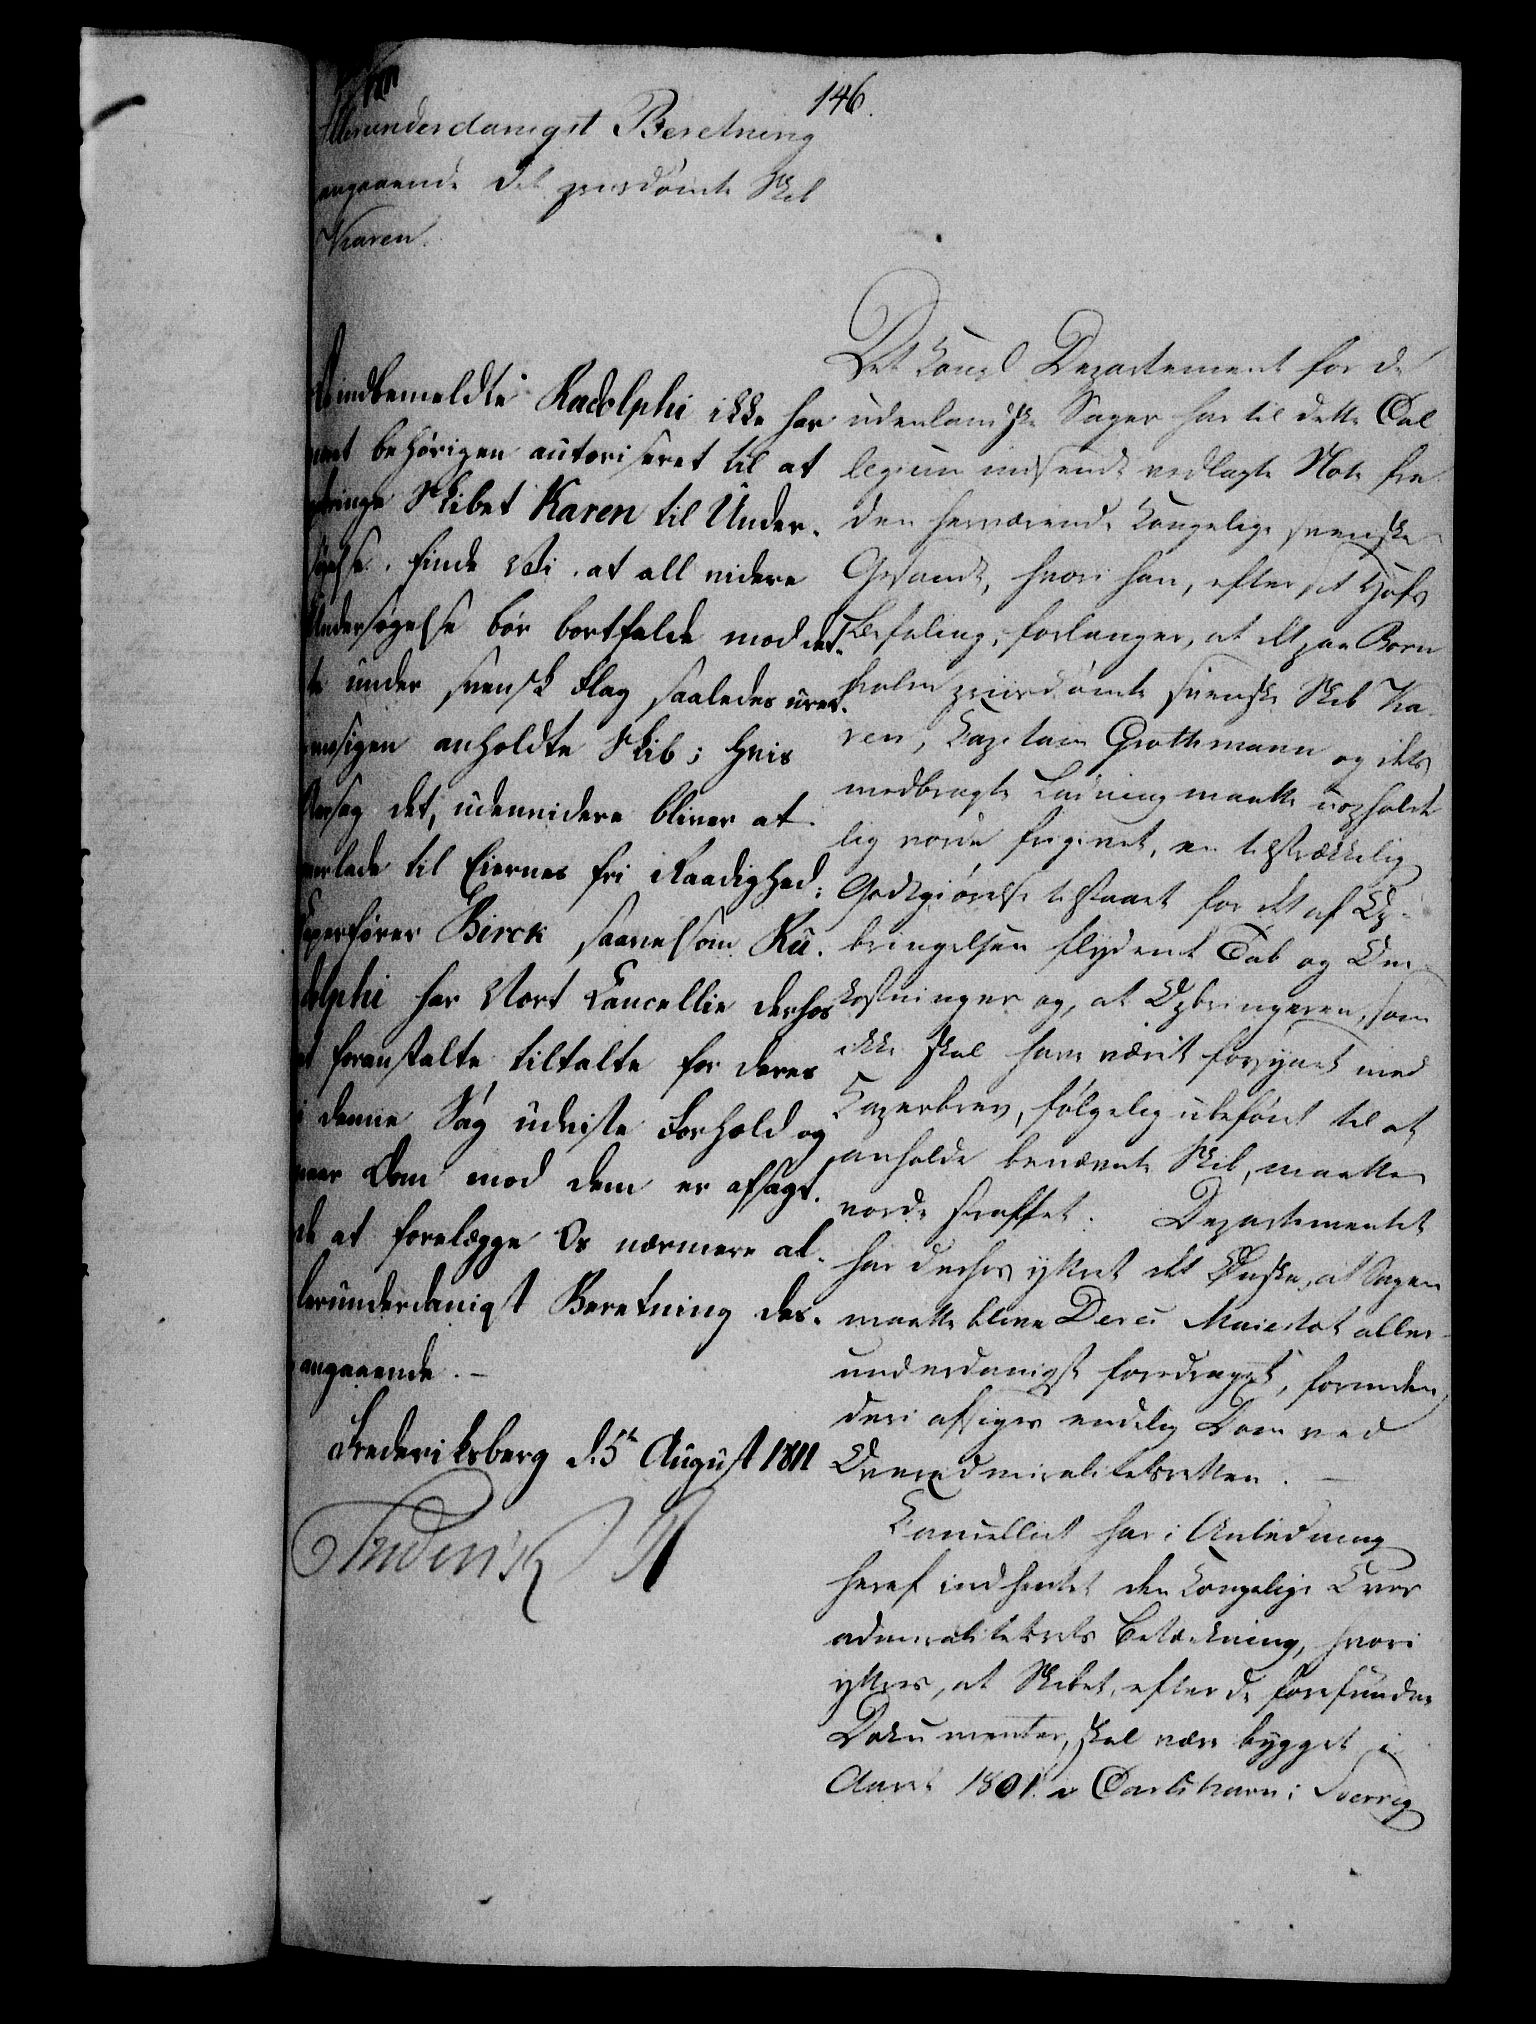 146.
Allerunderdanigst Beretning
angaaende det priisdömte Skib
Karen.
indbemeldte Radolphi ikke har
været behørigen autoriseret til at
opbringe Skibet Karen til Under-
søgelse, finde Vi, at all videre
Undersøgelse bør bortfalde mod det-
te under svensk Flag saaledes uret-
mæsigen anholdte Skib; hvis
Aarsag det, udenvidere bliver at
overlade til Eiernes fri Raadighed;
Caperfører Birck saavelsom Ru-
dolphi har Vort Cancellie derhos
at foranstalte tiltalte for deres
i denne Sag udviste Forhold og
naar Dom mod dem er afsagt,
da at forelægge Os nærmere al-
lerunderdanigst Beretning des-
angaaende. –
Frederiksberg d. 5t August 1811
Frederik R
Det kongl Departement for de
udenlandske Sager har til dette Col-
legium indsendt vedlagte Note fra
den herværende kongelige svenske
Gesandt, hvori han, efter sit Hofs
Befaling, forlanger, at det paa Born-
holm priisdömte svenske Skib Ka-
ren, Capitain Grothmann og dets
medbragte Ladning maatte uopholde-
lig vorde frigivet, en tilstrækkelig
Godtgiörelse tilstaaet for det af Op-
bringelsen flydende Tab og Om-
kostninger og, at Opbringeren, som
ikke skal have værit forsynet med
Caperbrev, følgelig ubeføiet til at
anholde benævnte Skib, maatte
vorde straffet. Departementet
har derhos yttret det Ønske, at Sagen
maatte blive Deres Maiestæt aller-
underdanigst foredraget, forinden
deri afsiges endelig Dom ved
Overadmiralitetsretten. –
Cancelliet har i Anledning
heraf indhentet den kongelige Over
admiralitetsrets Betænkning, hvori
yttres, at Skibet, efter de forefundne
Dokumenter, skal være bygget i
Aaret 1801 i Carlshavn i Sverrig